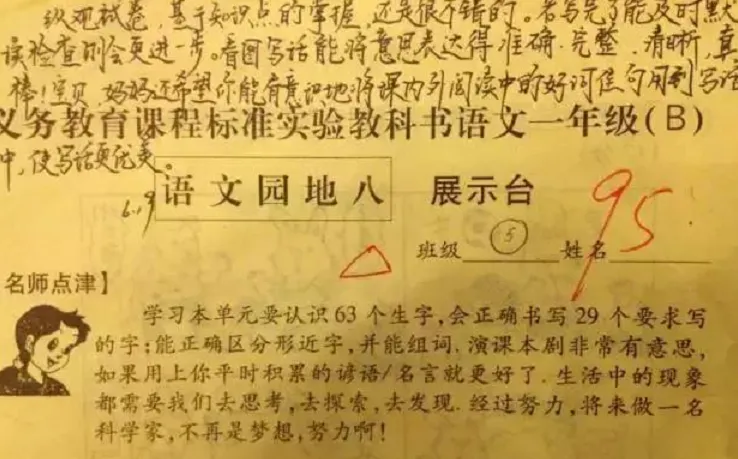 纵观试卷,基于知识点的掌握,还是很不错的。若写完了能及时默
读检查则会更进一步。看图写话能将意思表达得准确、完整、清晰,真
棒!宝贝,妈妈还希望你能有意识地将课内外阅读中的好词佳句用到写话
义务教育课程标准实验教科书语文一年级(B)
中,使写话更优美。
6.19
语文园地八 展示台
95
班级 5 姓名
名师点津】
学习本单元要认识63个生字,会正确书写29个要求写
的字;能正确区分形近字,并能组词.演课本剧非常有意思,
如果用上你平时积累的谚语/名言就更好了.生活中的现象
都需要我们去思考,去探索,去发现.经过努力,将来做一名
科学家,不再是梦想,努力啊!